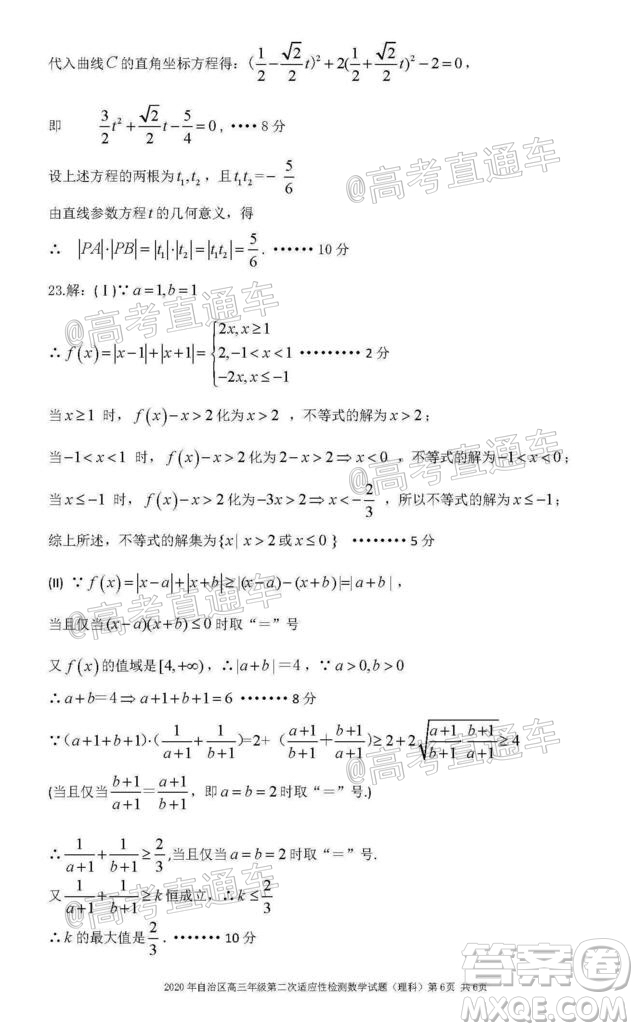 代入曲线C的直角坐标方程得：(1/2 − √2/2 t)² + 2(1/2 + √2/2 t)² − 2 = 0，
即 3/2 t² + √2/2 t − 5/4 = 0，····8分
设上述方程的两根为t₁,t₂，且t₁t₂=− 5/6
由直线参数方程t的几何意义，得
∴ |PA|·|PB|=|t₁|·|t₂|=|t₁t₂|=5/6. ······10分
23.解：(Ⅰ)∵a=1,b=1
∴f(x)=|x−1|+|x+1|={2x,x≥1
2,−1<x<1 ·········2分
−2x,x≤−1
当x≥1 时，f(x)−x>2化为x>2 ，不等式的解为x>2；
当−1<x<1 时，f(x)−x>2化为2−x>2⇒x<0 ，不等式的解为−1<x<0；
当x≤−1 时，f(x)−x>2化为−3x>2⇒x<−2/3 ，所以不等式的解为x≤−1；
综上所述，不等式的解集为{x| x>2或x≤0 } ········5分
(II) ∵f(x)=|x−a|+|x+b|≥|(x−a)−(x+b)|=|a+b|，
当且仅当(x−a)(x+b)≤0时取“＝”号
又f(x)的值域是[4,+∞)，∴|a+b|=4，∵a>0,b>0
∴a+b=4⇒a+1+b+1=6 ·······8分
∵(a+1+b+1)·(1/(a+1)+1/(b+1))=2+ ((a+1)/(b+1)+(b+1)/(a+1))≥2+2√((a+1)/(b+1)·(b+1)/(a+1))≥4
(当且仅当(b+1)/(a+1)=(a+1)/(b+1)，即a=b=2时取“＝”号.)
∴1/(a+1)+1/(b+1)≥2/3,当且仅当a=b=2时取“＝”号.
又1/(a+1)+1/(b+1)≥k恒成立，∴k≤2/3
∴k的最大值是2/3. ·······10分
2020年自治区高三年级第二次适应性检测数学试题（理科）第6页 共6页
@高考直通车
@高考直通车
@高考直通车
@高考直通车
@高考直通车
@高考直通车
@高考直通车